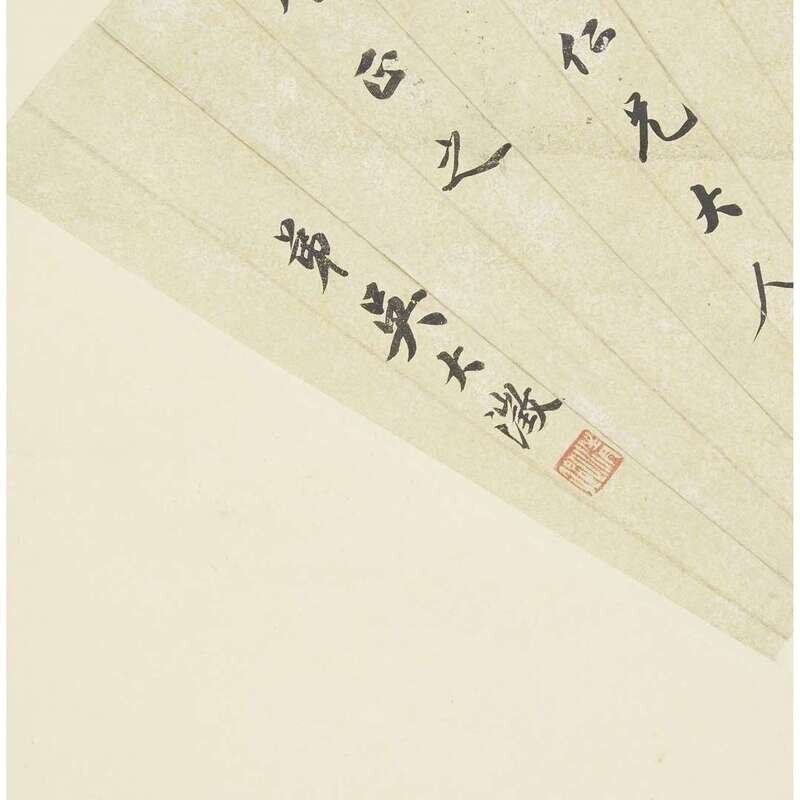 仁兄大人
正之
弟吳大澂